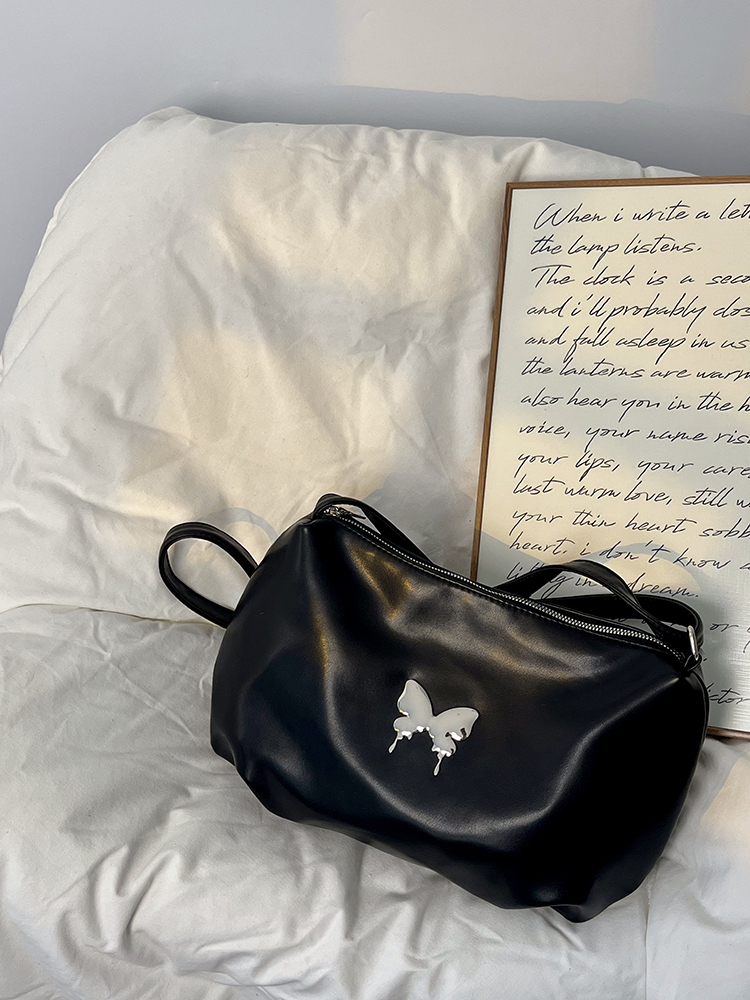 When i write a let
the lamp listens.
The clock is a seco
and i'll probably dos
and fall asleep in us
the lanterns are warm
also hear you in the h
voice, your name risi
your lips, your care
last warm love, still w
your thin heart sobb
heart. i don't know a
in dream.
or